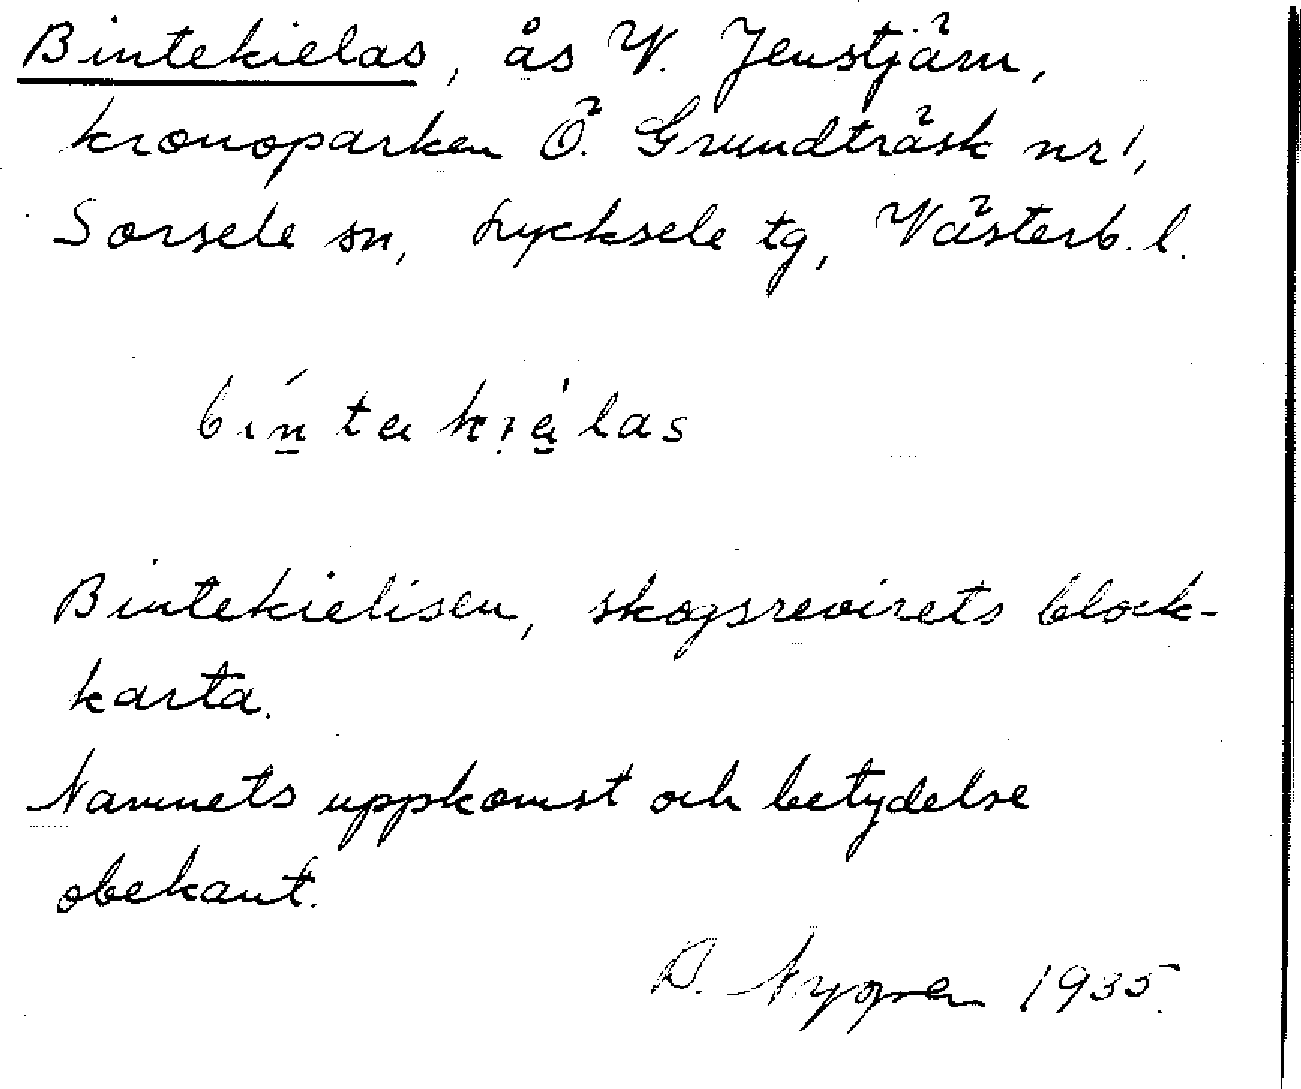 Bintekielas, ås V. Jenstjärn,
kronoparken Ö. Grundträsk nr 1,
Sorsele sn, Lycksele tg, Västerb. l.
Bintekielisen, skogsrevirets block-
karta.
Namnets uppkomst och betydelse
obekant.
Nygren 1935.